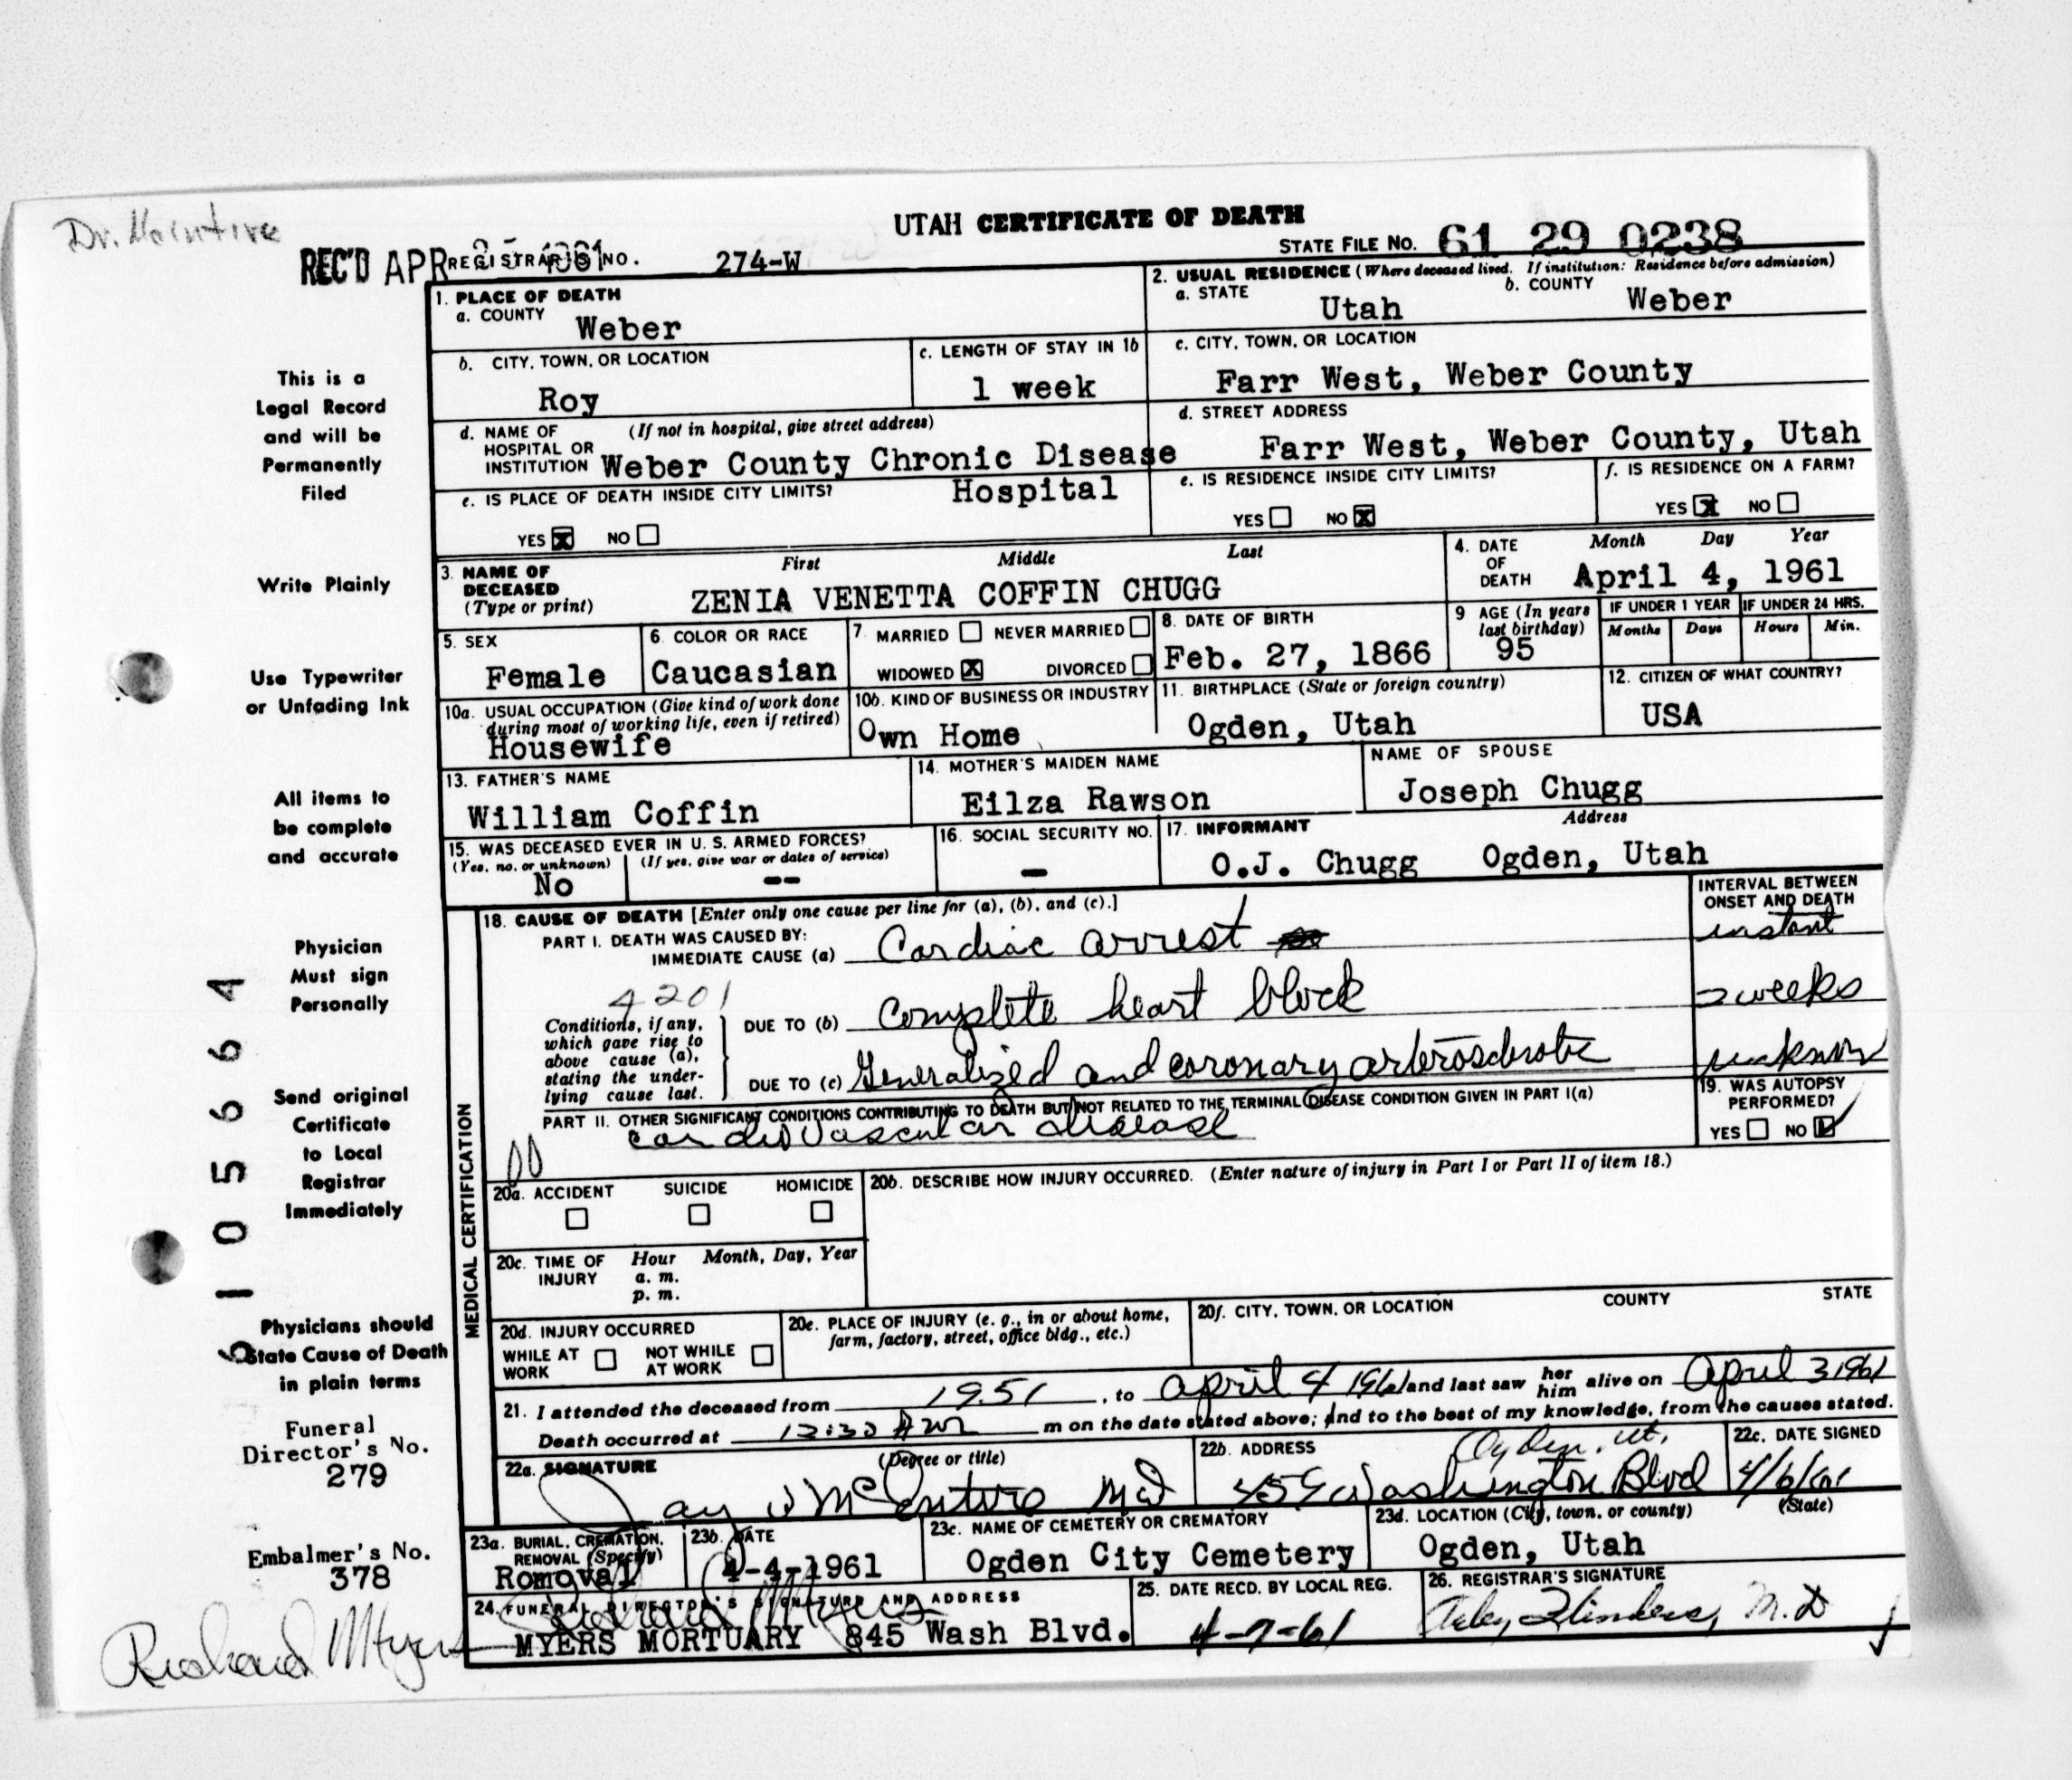 Dr. McIntire
UTAH CERTIFICATE OF DEATH
REC'D APR 25 1961 REGISTRAR'S NO. 274-W
STATE FILE NO. 61 29 0238
1. PLACE OF DEATH
a. COUNTY Weber
2. USUAL RESIDENCE (Where deceased lived. If institution: Residence before admission)
a. STATE Utah b. COUNTY Weber
b. CITY, TOWN, OR LOCATION Roy
c. LENGTH OF STAY IN 1b 1 week
c. CITY, TOWN, OR LOCATION
Farr West, Weber County
d. NAME OF HOSPITAL OR INSTITUTION (If not in hospital, give street address)
Weber County Chronic Disease
Hospital
d. STREET ADDRESS
Farr West, Weber County, Utah
e. IS PLACE OF DEATH INSIDE CITY LIMITS?
YES X NO
e. IS RESIDENCE INSIDE CITY LIMITS?
YES NO X
f. IS RESIDENCE ON A FARM?
YES X NO
3. NAME OF DECEASED (Type or print)
First Middle Last
ZENIA VENETTA COFFIN CHUGG
4. DATE OF DEATH Month Day Year
April 4, 1961
5. SEX
Female
6. COLOR OR RACE
Caucasian
7. MARRIED NEVER MARRIED
WIDOWED X DIVORCED
8. DATE OF BIRTH
Feb. 27, 1866
9 AGE (In years last birthday)
95
IF UNDER 1 YEAR
Months Days
IF UNDER 24 HRS.
Hours Min.
10a. USUAL OCCUPATION (Give kind of work done during most of working life, even if retired)
Housewife
10b. KIND OF BUSINESS OR INDUSTRY
Own Home
11. BIRTHPLACE (State or foreign country)
Ogden, Utah
12. CITIZEN OF WHAT COUNTRY?
USA
13. FATHER'S NAME
William Coffin
14. MOTHER'S MAIDEN NAME
Eilza Rawson
NAME OF SPOUSE
Joseph Chugg
15. WAS DECEASED EVER IN U. S. ARMED FORCES?
(Yes, no, or unknown) (If yes, give war or dates of service)
No --
16. SOCIAL SECURITY NO.
-
17. INFORMANT Address
O.J. Chugg Ogden, Utah
18. CAUSE OF DEATH [Enter only one cause per line for (a), (b), and (c).]
INTERVAL BETWEEN ONSET AND DEATH
PART I. DEATH WAS CAUSED BY:
IMMEDIATE CAUSE (a) Cardiac arrest instant
4201
Conditions, if any, which gave rise to above cause (a), stating the underlying cause last.
DUE TO (b) Complete heart block 2 weeks
DUE TO (c) Generalized and coronary arteriosclerotic unknown
PART II. OTHER SIGNIFICANT CONDITIONS CONTRIBUTING TO DEATH BUT NOT RELATED TO THE TERMINAL DISEASE CONDITION GIVEN IN PART I(a)
cardiovascular disease
00
19. WAS AUTOPSY PERFORMED?
YES NO
MEDICAL CERTIFICATION
20a. ACCIDENT SUICIDE HOMICIDE
20b. DESCRIBE HOW INJURY OCCURRED. (Enter nature of injury in Part I or Part II of item 18.)
20c. TIME OF INJURY Hour Month, Day, Year
a. m.
p. m.
20d. INJURY OCCURRED
WHILE AT WORK NOT WHILE AT WORK
20e. PLACE OF INJURY (e. g., in or about home, farm, factory, street, office bldg., etc.)
20f. CITY, TOWN, OR LOCATION COUNTY STATE
21. I attended the deceased from 1951, to April 4 1961 and last saw her him alive on April 3 1961
Death occurred at 12:30 AM m on the date stated above; and to the best of my knowledge, from the causes stated.
22a. SIGNATURE (Degree or title)
Jay W McEntire MD
22b. ADDRESS
Ogden, Ut.
Washington Blvd
22c. DATE SIGNED
4/6/61
23a. BURIAL, CREMATION, REMOVAL (Specify)
Romoval
23b. DATE
4-4-1961
23c. NAME OF CEMETERY OR CREMATORY
Ogden City Cemetery
23d. LOCATION (City, town, or county) (State)
Ogden, Utah
24. FUNERAL DIRECTOR'S SIGNATURE AND ADDRESS
Richard Myers
MYERS MORTUARY 845 Wash Blvd.
25. DATE RECD. BY LOCAL REG.
4-7-61
26. REGISTRAR'S SIGNATURE
Flinders, M.D
This is a
Legal Record
and will be
Permanently
Filed
Write Plainly
Use Typewriter
or Unfading Ink
All items to
be complete
and accurate
Physician
Must sign
Personally
Send original
Certificate
to Local
Registrar
Immediately
Physicians should
State Cause of Death
in plain terms
Funeral
Director's No.
279
Embalmer's No.
378
Richard Myers
6105664